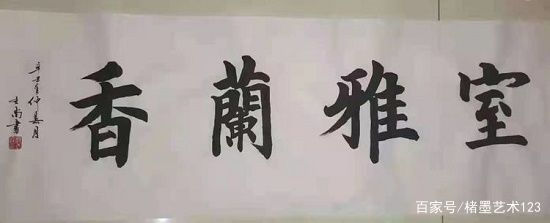 室雅蘭香
辛丑年仲夏月
書
百家号/楮墨艺术123